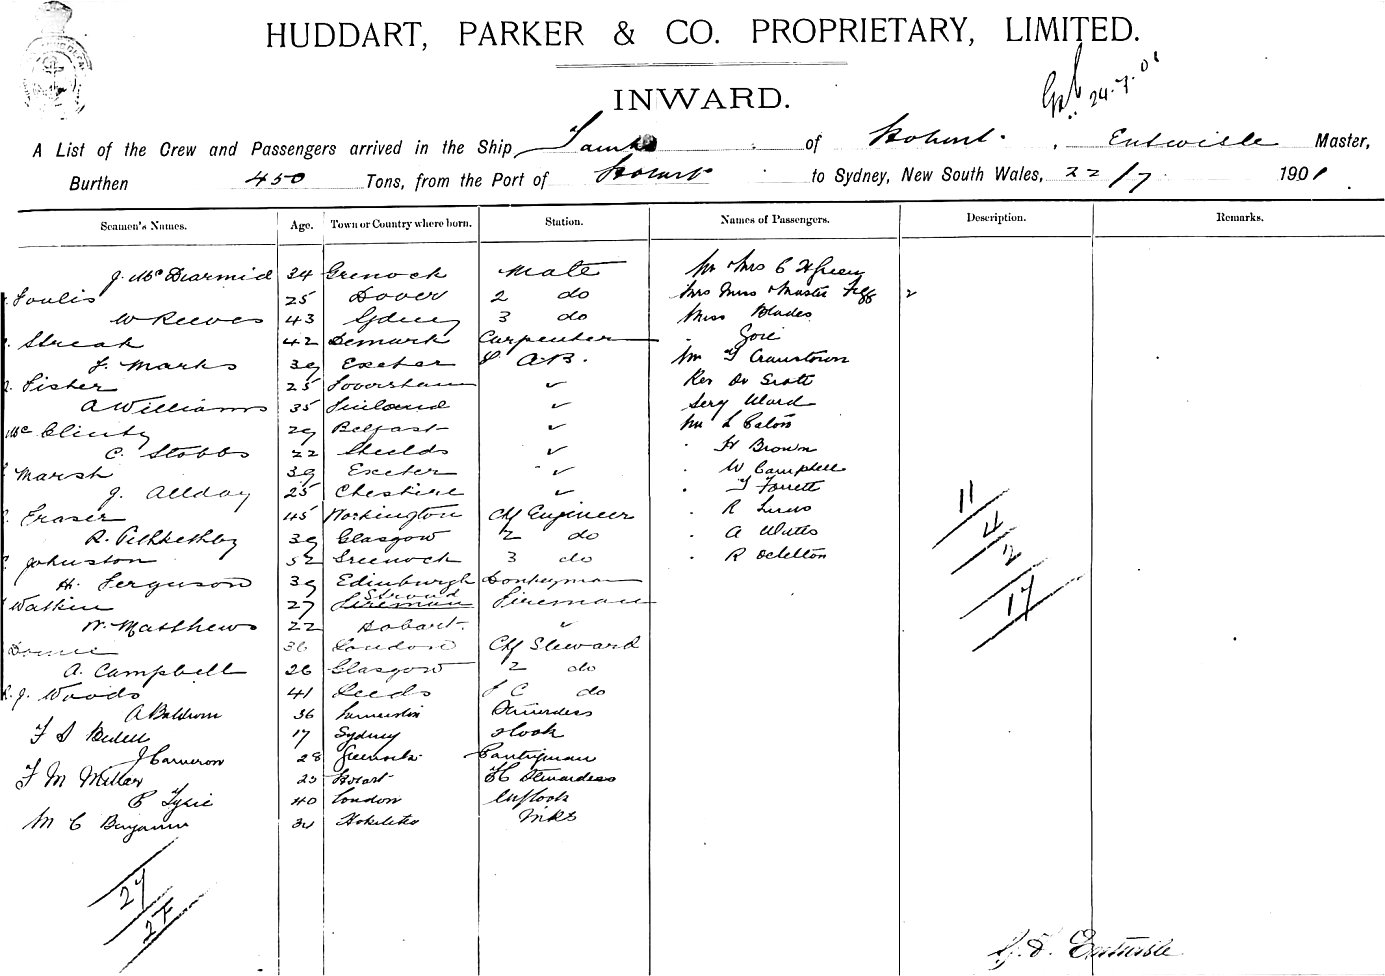 HUDDART, PARKER & CO. PROPRIETARY, LIMITED.
24.7.01
INWARD.
A List of the Crew and Passengers arrived in the Ship of Hobart. , Entwisle Master,
Burthen 450 Tons, from the Port of Hobart to Sydney, New South Wales, 22/7 1901.
Seamen's Names. Age. Town or Country where born. Station. Names of Passengers. Description. Remarks.
J. McDiarmid 34 Grenock Mate Mr Mrs C H Green
Foulis 25 Dover 2 do Mrs Miss Master 2
W Reeves 43 Sydney 3 do Miss Blades
Streak 42 Demark Carpenter
J. Marks 39 Exeter A.B. Mr T Cranstown
Fisher 25 ✓ Rev Dr Scott
A Williams 35 Finland ✓ Serg Ward
McClinty 29 Belfast ✓ Mr L Eaton
C. Stobbs 22 Shields ✓ H Brown
Marsh 39 Exeter ✓ W Campbell
J. Allday 25 Cheshire ✓ T
Fraser 45 Workington Chf Engineer R
R. 39 Glasgow 2 do A
Johnston 52 Greenock 3 do R
H. Ferguson 39 Edinburgh Donkeyman
Watkin 27 Stroud Fireman Fireman
W. Matthews 22 Hobart. ✓
36 London Chf Steward
A. Campbell 26 Glasgow 2 do
R. J. Woods 41 Leeds F C do
A Baldwin 36 Stewardess
F S 17 Sydney
J Cameron 28 Greenock Pantryman
F M Millar 25 Hobart F C Stewardess
C 40 London
M C Benjamin 34
11
4
2
17
27
27
Entwisle